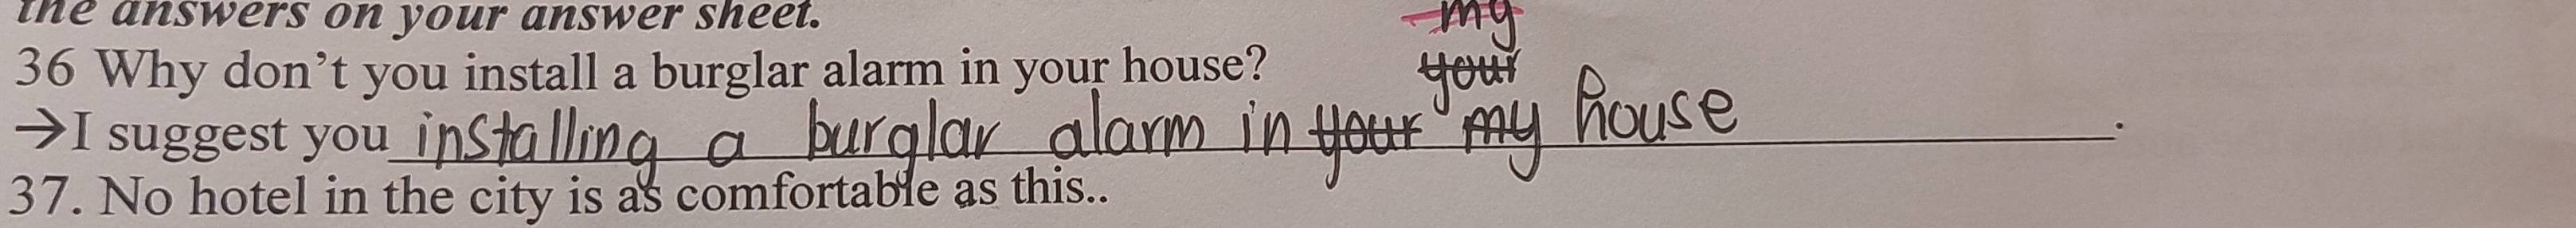 the answers on your answer sheet.
my
36 Why don't you install a burglar alarm in your house?
your
→I suggest you installing a burglar alarm in your my house.
37. No hotel in the city is as comfortable as this..